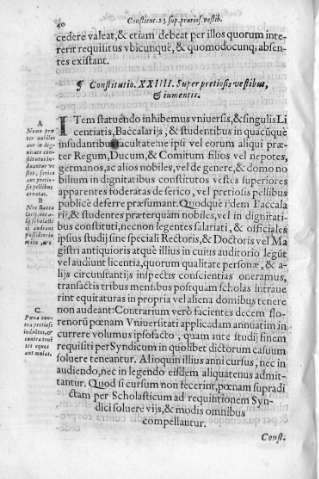 40
Constitut. 23 sup. pretios. vestib.
cedere valeat, & etiam debeat per illos quorum inte-
rerit requisitus vbicunquè, & quomodocunq; absen-
tes existant.
¶ Constitutio. XXIIII. Super pretiosis vestibus,
& iumentis.
ITem statuendo inhibemus vniuersis, & singulis Li
centiatis, Baccalarijs, & studentibus in quacũquè
insudantibus facultate ne ipsi vel eorum aliqui præ-
ter Regum, Ducum, & Comitum filios vel nepotes,
germanos, ac alios nobiles, vel de genere, & domo no
bilium in dignitatibus constitutos vestes superiores
apparentes foderatas de serico, vel pretiosis pellibus
publicè deferre præsumant. Quodquè idem Baccala
rij, & studentes præterquàm nobiles, vel in dignitati-
bus constituti, necnon legentes salariati, & officiales
ipsius studij sine speciali Rectoris, & Doctoris vel Ma
gistri antiquioris atquè illius in cuius auditorio legũt
vel audiunt licentia, quorum qualitate personæ, & a-
lijs circunstantijs inspectis conscientias oneramus,
transactis tribus mensibus postquam scholas intraue
rint equitaturas in propria vel aliena domibus tenere
non audeant. Contrarium verò facientes decem flo-
renorũ pœnam Vniuersitati applicãdam annuatim in
currere volumus ipso facto, quam ante studij finem
requisiti per Syndicum in quolibet dictorum casuum
soluere teneantur. Alioquin illius anni cursus, nec in
audiendo, nec in legendo eisdem aliquatenus admit-
tantur. Quod si cursum non fecerint, pœnam supradi
ctam per Scholasticum ad requisitionem Syn-
dici soluere vijs, & modis omnibus
compellantur.
A
B
C
Const.